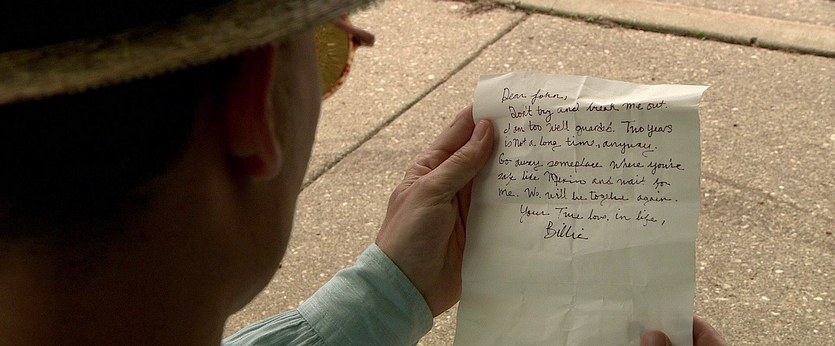 Dear John,
Don't try and break me out.
I'm too well guarded. Two years
is not a long time, anyway.
Go away someplace where you're
safe like Mexico and wait for
me. We will be together again.
Your True love in life,
Billie